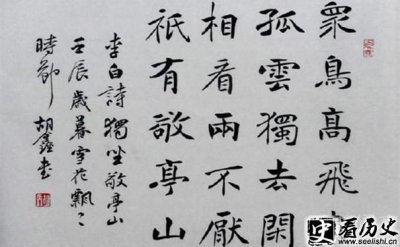 衆鳥高飛
孤雲獨去閑
相看兩不厭
祇有敬亭山
李白詩獨坐敬亭山
壬辰歲暮雪花飄〻
時節 胡鑫書
看历史
www.seelishi.cn